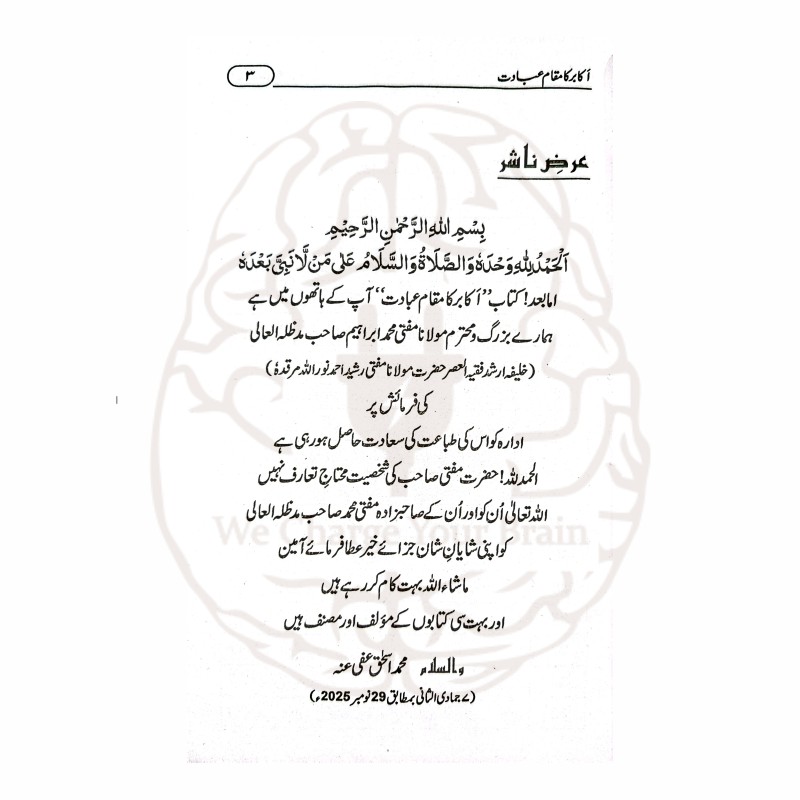 اَکابر کا مقام عبادت
۳
عرضِ ناشر
بِسْمِ اللهِ الرَّحْمٰنِ الرَّحِيْمِ
اَلْحَمْدُ لِلّٰهِ وَحْدَهٗ وَالصَّلَاةُ وَالسَّلَامُ عَلٰى مَنْ لَّا نَبِیَّ بَعْدَهٗ
اما بعد! کتاب ”اَکابر کا مقام عبادت“ آپ کے ہاتھوں میں ہے
ہمارے بزرگ و محترم مولانا مفتی محمد ابراہیم صاحب مدظلہ العالی
(خلیفہ ارشد فقیہ العصر حضرت مولانا مفتی رشید احمد نور اللہ مرقدہٗ)
کی فرمائش پر
ادارہ کو اس کی طباعت کی سعادت حاصل ہو رہی ہے
الحمد للہ! حضرت مفتی صاحب کی شخصیت محتاجِ تعارف نہیں
اللہ تعالیٰ اُن کو اور اُن کے صاحبزادہ مفتی محمد صاحب مدظلہ العالی
We Charge Your Brain
کو اپنی شایانِ شان جزائے خیر عطا فرمائے آمین
ماشاء اللہ بہت کام کر رہے ہیں
اور بہت سی کتابوں کے مؤلف اور مصنف ہیں
والسلام محمد اسحٰق عفی عنہ
(۷ جمادی الثانی بمطابق 29 نومبر 2025ء)